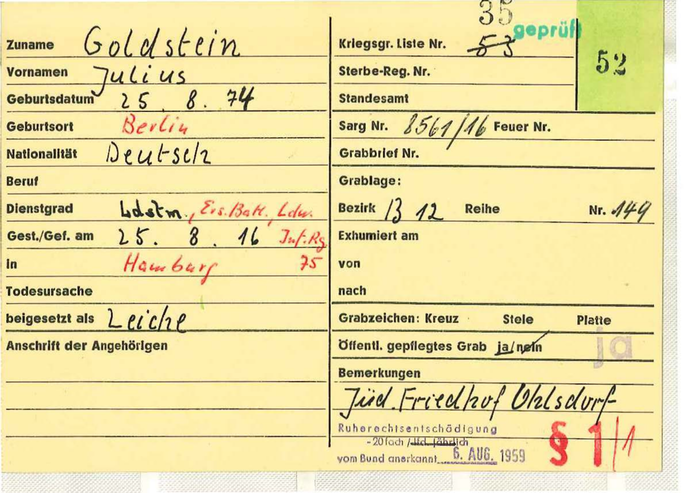 35
geprüft
52
Zuname Goldstein
Vornamen Julius
Geburtsdatum 25. 8. 74
Geburtsort Berlin
Nationalität Deutsch
Beruf
Dienstgrad Ldstm., Ers. Batl. Ldw.
Gest./Gef. am 25. 8. 16 Inf. Rg
in Hamburg 75
Todesursache
beigesetzt als Leiche
Anschrift der Angehörigen
Kriegsgr. Liste Nr. 53
Sterbe-Reg. Nr.
Standesamt
Sarg Nr. 8561/16 Feuer Nr.
Grabbrief Nr.
Grablage:
Bezirk B 12 Reihe Nr. 149
Exhumiert am
von
nach
Grabzeichen: Kreuz Stele Platte
Öffentl. gepflegtes Grab ja/nein ja
Bemerkungen
Jüd. Friedhof Ohlsdorf
Ruherechtsentschädigung
-20fach / lfd. jährlich
vom Bund anerkannt 6. AUG. 1959
§ 1/1